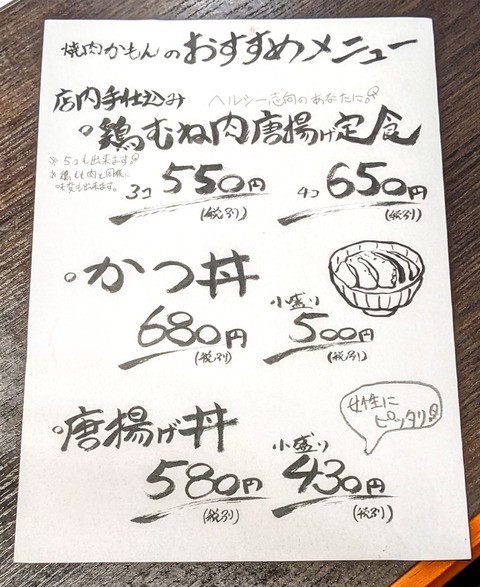 焼肉かもんのおすすめメニュー
店内手仕込み ヘルシー志向のあなたに♪
。鶏むね肉唐揚げ定食
※5コも出来ます♪
※鶏もも肉と同様に
味変も出来ます。
3コ 550円 4コ 650円
(税別) (税別)
。かつ丼
680円 小盛り 500円
(税別) (税別)
。唐揚げ丼
女性に
ピッタリ♪
580円 小盛り 430円
(税別) (税別)